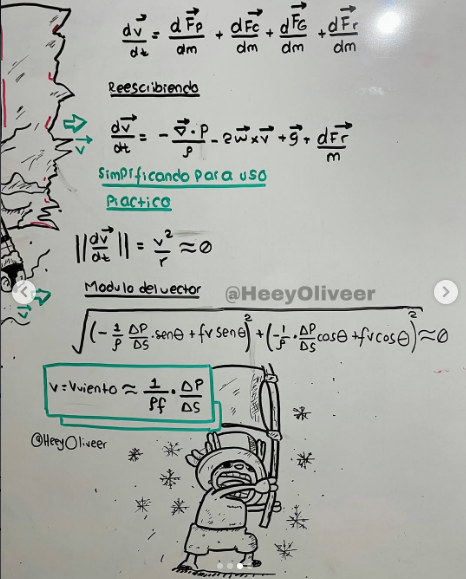 dv⃗/dt = dF⃗p/dm + dF⃗c/dm + dF⃗G/dm + dF⃗r/dm
Reescribiendo
dv⃗/dt = - ∇⃗·P/ρ - 2w⃗xv⃗ + g⃗ + dF⃗r/m
v⃗
Simplificando para uso
Práctico
||dv⃗/dt|| = v²/r ≈ 0
Modulo del vector
@HeeyOliveer
v⃗
√((-1/ρ ΔP/ΔS · senθ + fv senθ)² + (-1/ρ · ΔP/ΔS cosθ + fv cosθ)²) ≈ 0
v = Vviento ≈ 1/ρf · ΔP/ΔS
@HeeyOliveer